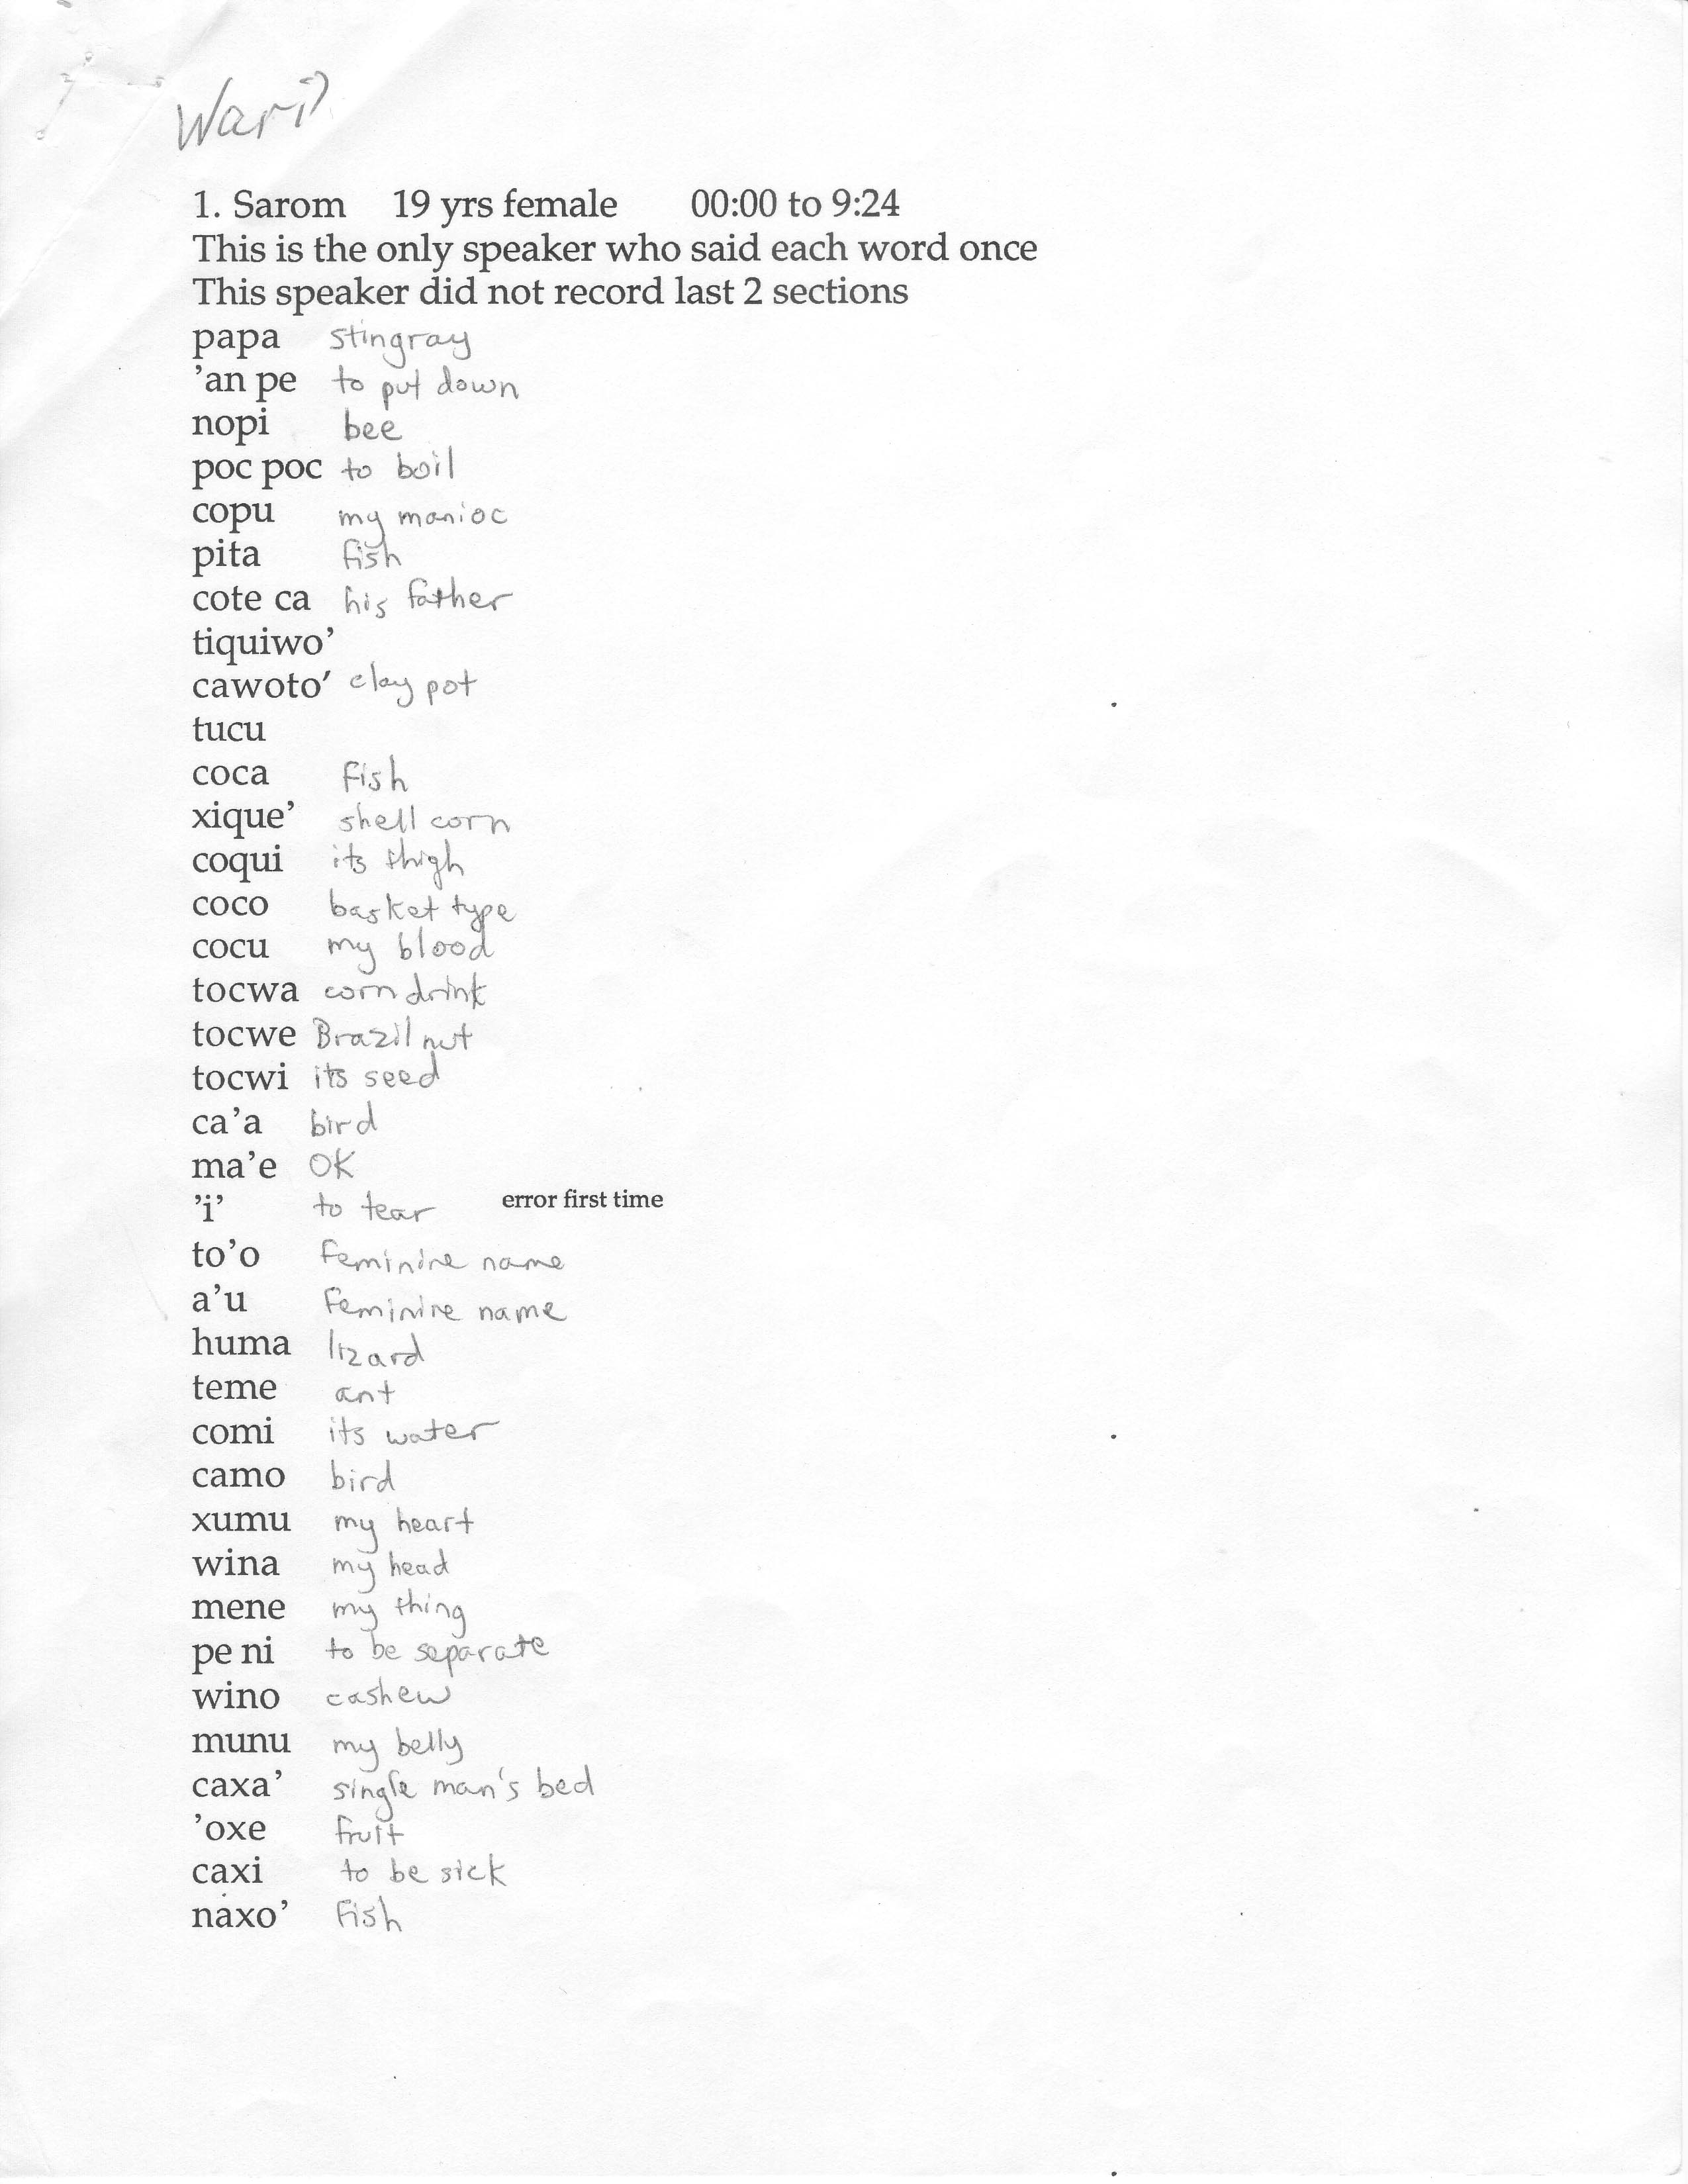 Wari'
1. Sarom 19 yrs female 00:00 to 9:24
This is the only speaker who said each word once
This speaker did not record last 2 sections
papa stingray
’an pe to put down
nopi bee
poc poc to boil
copu my manioc
pita fish
cote ca his father
tiquiwo’
cawoto’ clay pot
tucu
coca fish
xique’ shell corn
coqui its thigh
coco basket type
cocu my blood
tocwa corn drink
tocwe Brazil nut
tocwi its seed
ca’a bird
ma’e OK
’i’ to tear error first time
to’o feminine name
a’u feminine name
huma lizard
teme ant
comi its water
camo bird
xumu my heart
wina my head
mene my thing
pe ni to be separate
wino cashew
munu my belly
caxa’ single man's bed
’oxe fruit
caxi to be sick
naxo’ fish